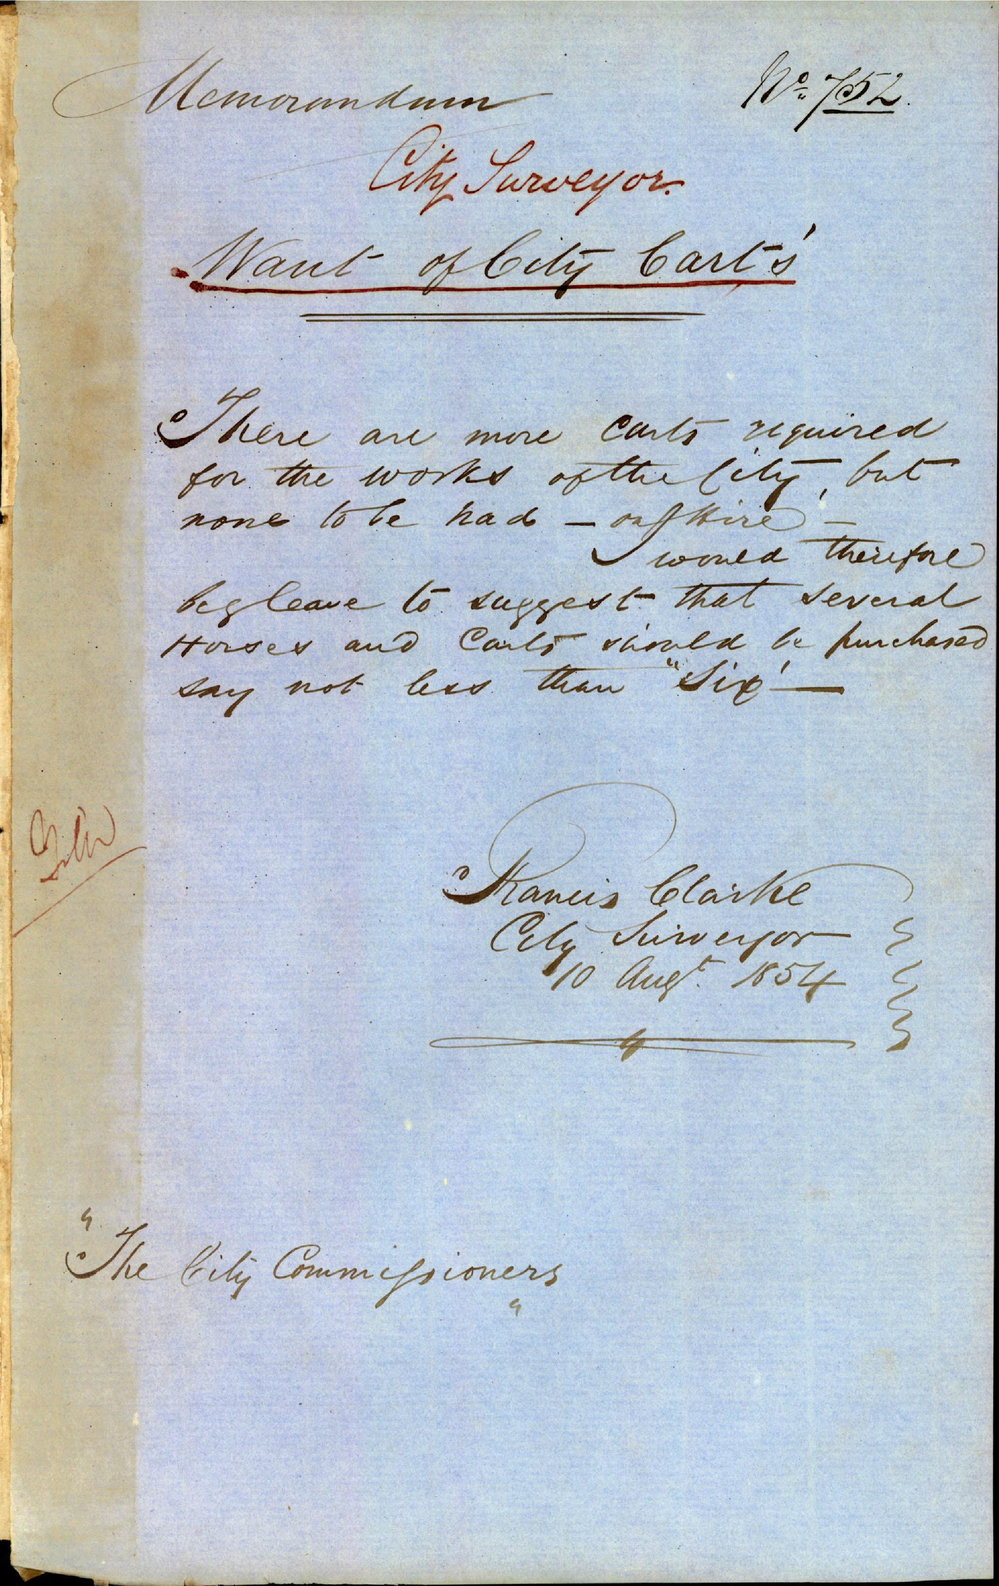 Memorandum
No. 752.
City Surveyor.
Want of City Cart's
There are more Carts required
for the works of the City, but
none to be had – on Hire –
I would therefore
beg leave to suggest that several
Horses and Carts should be purchased
say not less than "Six' —
Francis Clarke
City Surveyor
10 Augt. 1854
"The City Commissioners"